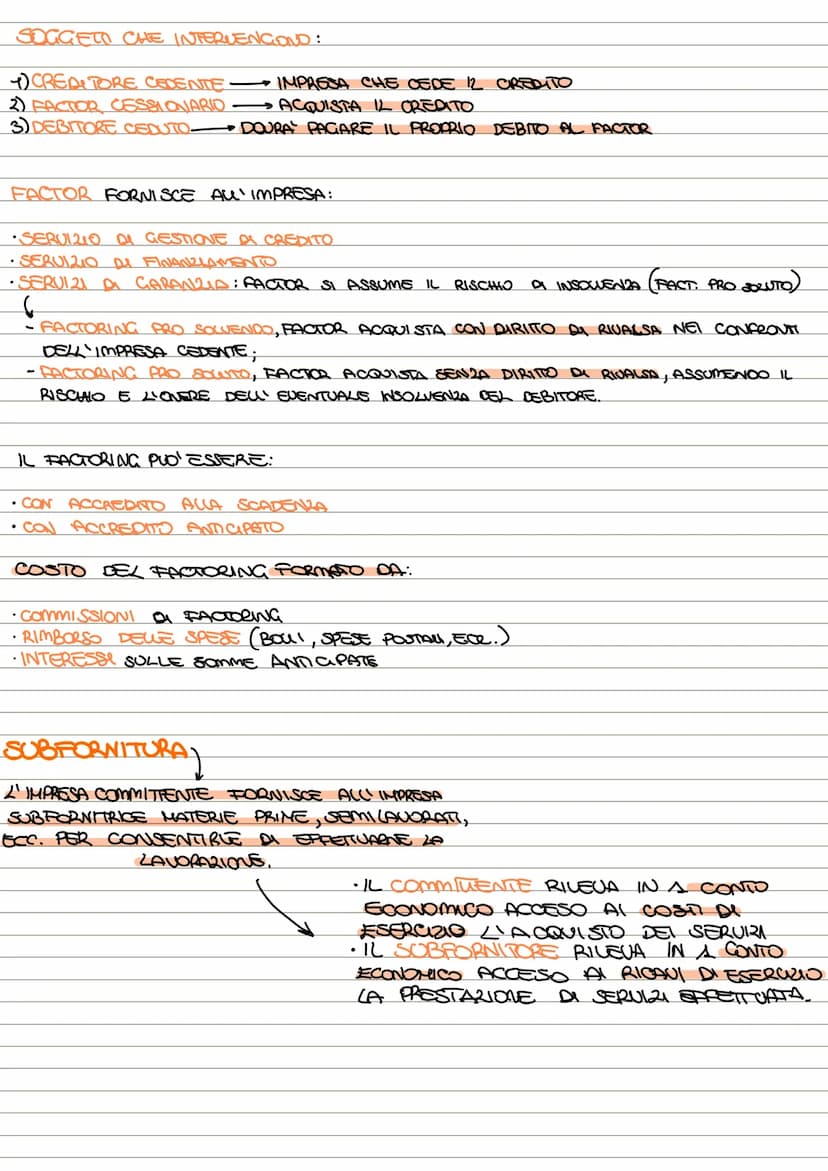 SOGGETTI CHE INTERVENGONO:
1) CREDITORE CEDENTE → IMPRESA CHE CEDE IL CREDITO
2) FACTOR CESSIONARIO → ACQUISTA IL CREDITO
3) DEBITORE CEDUTO → DOVRA' PAGARE IL PROPRIO DEBITO AL FACTOR
FACTOR FORNISCE ALL'IMPRESA:
· SERVIZIO DI GESTIONE DI CREDITO
· SERVIZIO DI FINANZIAMENTO
· SERVIZI DI GARANZIA: FACTOR SI ASSUME IL RISCHIO DI INSOLVENZA (FACT. PRO SOLUTO)
- FACTORING PRO SOLVENDO, FACTOR ACQUISTA CON DIRITTO DI RIVALSA NEI CONFRONTI
DELL'IMPRESA CEDENTE;
- FACTORING PRO SOLUTO, FACTOR ACQUISTA SENZA DIRITTO DI RIVALSA, ASSUMENDO IL
RISCHIO E L'ONERE DELL' EVENTUALE INSOLVENZA DEL DEBITORE.
IL FACTORING PUO' ESSERE:
· CON ACCREDITO ALLA SCADENZA
· CON ACCREDITO ANTICIPATO
COSTO DEL FACTORING FORMATO DA:
· COMMISSIONI DI FACTORING
· RIMBORSO DELLE SPESE (BOLLI, SPESE POSTALI, ECC.)
· INTERESSI SULLE SOMME ANTICIPATE
SUBFORNITURA
L'IMPRESA COMMITTENTE FORNISCE ALL'IMPRESA
SUBFORNITRICE MATERIE PRIME, SEMILAVORATI,
ECC. PER CONSENTIRLE DI EFFETTUARNE LA
LAVORAZIONE.
· IL COMMITTENTE RILEVA IN 1 CONTO
ECONOMICO ACCESO AI COSTI DI
ESERCIZIO L'ACQUISTO DEI SERVIZI
· IL SUBFORNITORE RILEVA IN 1 CONTO
ECONOMICO ACCESO AI RICAVI DI ESERCIZIO
LA PRESTAZIONE DI SERVIZI EFFETTUATA.